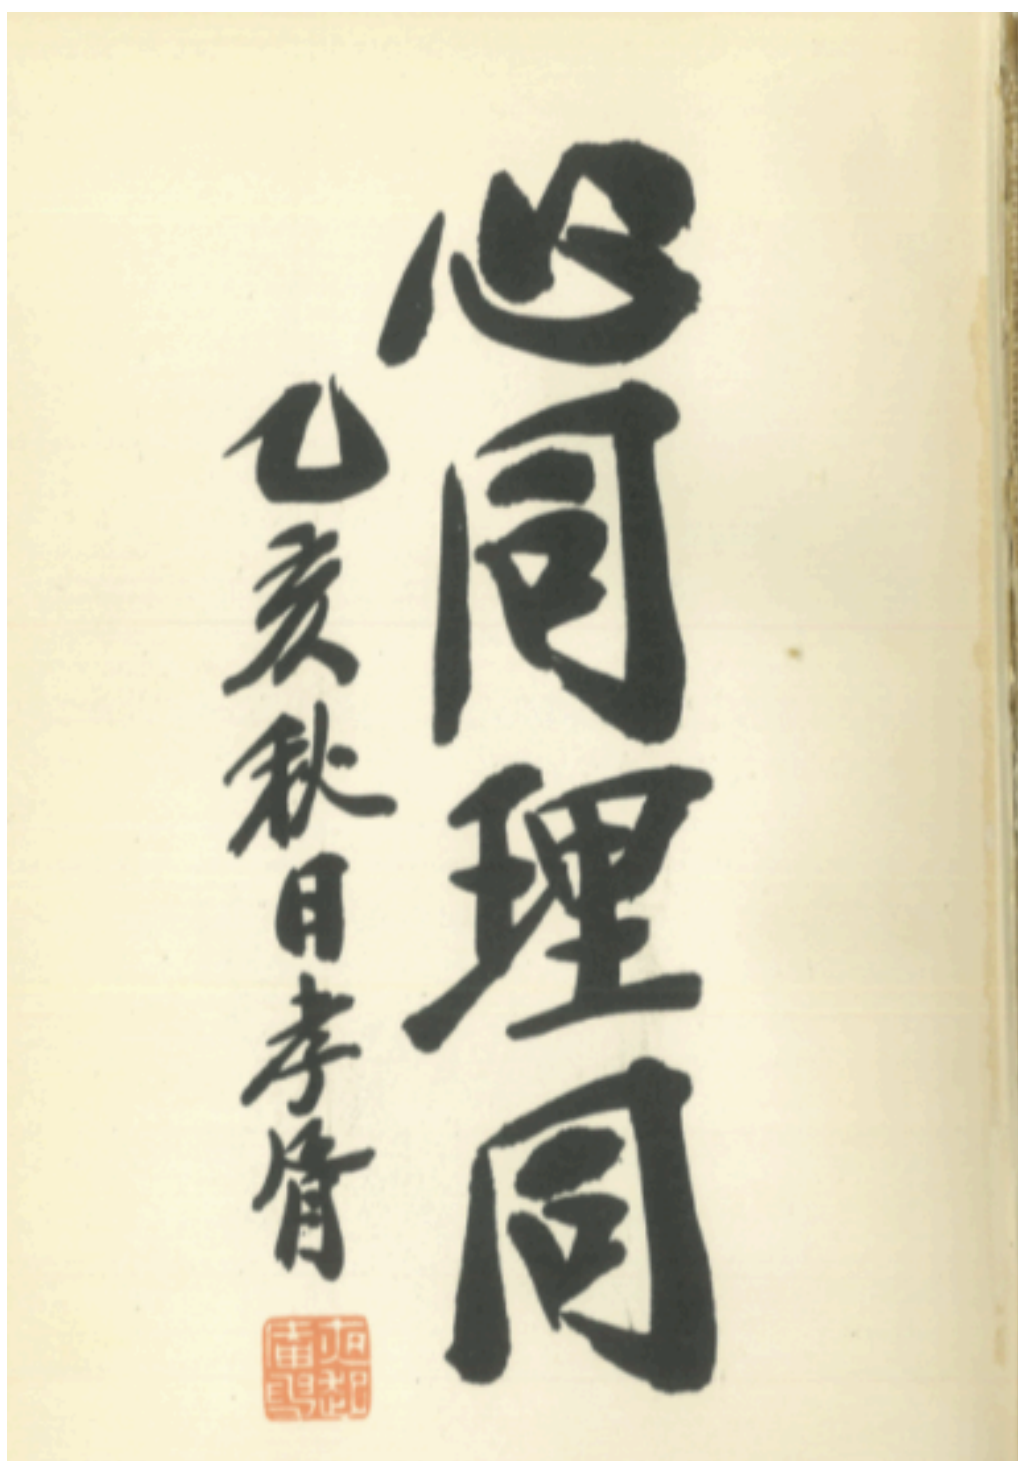 心同理同
乙亥秋日孝胥